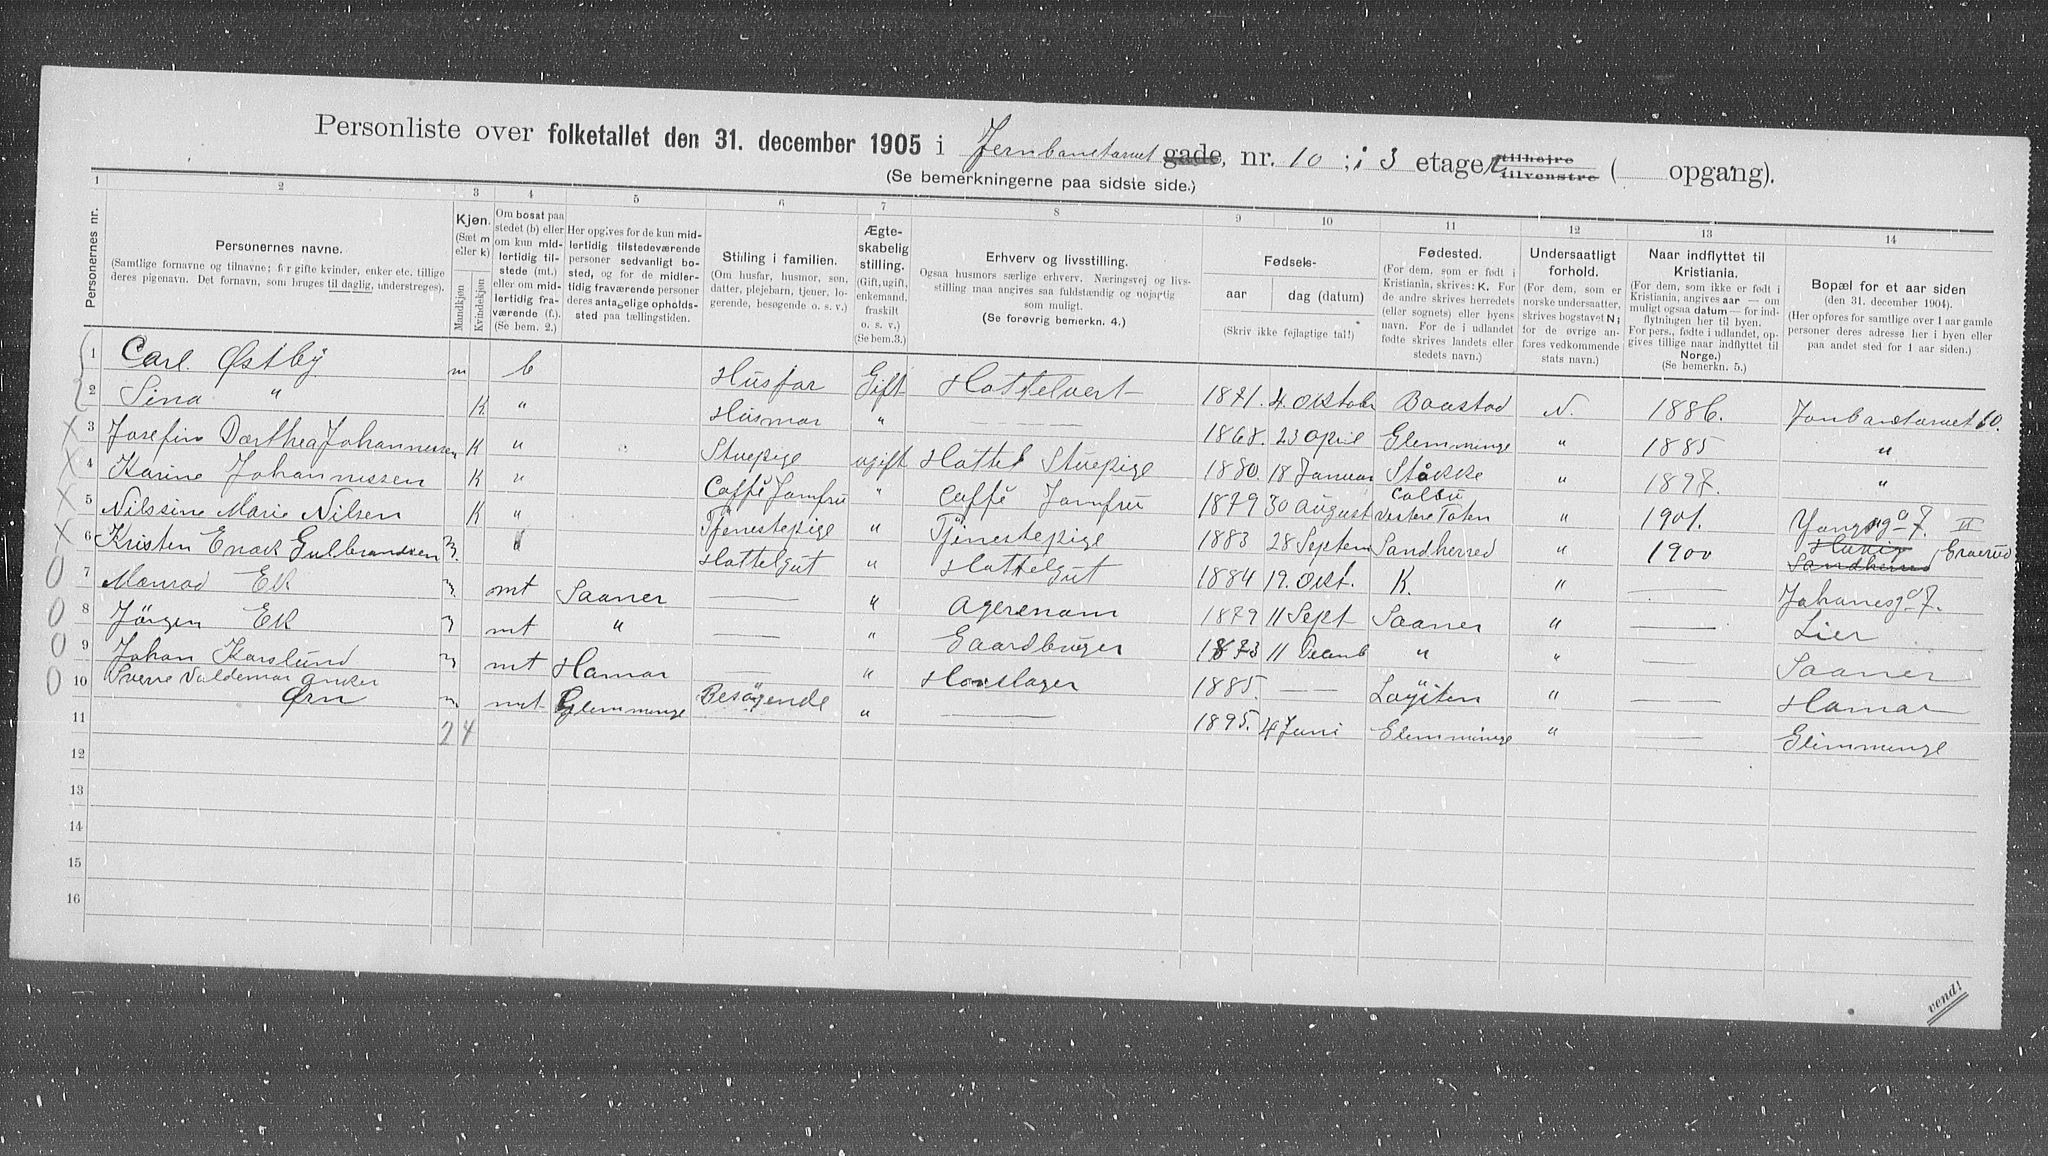 Personliste over folketallet den 31. december 1905 i Jernbanetorvet gade, nr. 10 ; i 3 etage tilhøire tilvenstre ( opgang).
(Se bemerkningerne paa sidste side.)
1 2 3 4 5 6 7 8 9 10 11 12 13 14
Personernes nr.
Personernes navne.
(Samtlige fornavne og tilnavne; for gifte kvinder, enker etc. tillige deres pigenavn. Det fornavn, som bruges til daglig, understreges).
Kjøn.
(Sæt m eller k)
Mandkjøn
Kvindekjøn
Om bosat paa stedet (b) eller om kun midlertidig tilstede (mt.) eller om midlertidig fraværende (f.). (Se bem. 2.)
Her opgives for de kun midlertidig tilstedeværende personer sedvanligt bosted, og for de midlertidig fraværende personer deres antagelige opholdssted paa tællingstiden.
Stilling i familien.
(Om husfar, husmor, søn, datter, plejebarn, tjener, logerende, besøgende o. s. v.)
Ægteskabelig stilling.
(Gift, ugift, enkemand, fraskilt o. s. v.) (Se bem.3.)
Erhverv og livsstilling.
Ogsaa husmors særlige erhverv. Næringsvej og livsstilling maa angives saa fuldstændig og nøjagtig som muligt.
(Se forøvrig bemerkn. 4.)
Fødsels-
aar
dag (datum)
(Skriv ikke fejlagtige tal!)
Fødested.
(For dem, som er født i Kristiania, skrives: K. For de andre skrives herredets (eller sognets) eller byens navn. For de i udlandet fødte skrives landets eller stedets navn.)
Undersaatligt forhold.
(For dem, som er norske undersaatter, skrives bogstavet N; for de øvrige anføres vedkommende stats navn.)
Naar indflyttet til Kristiania.
(For dem, som ikke er født i Kristiania, angives aar — om muligt ogsaa datum — for indflytningen her til byen. For pers., fødte i udlandet, opgives tillige naar indflyttet til Norge.)
(Se bemerkn. 5.)
Bopæl for et aar siden
(den 31. december 1904).
(Her opføres for samtlige over 1 aar gamle personer deres adresse her i byen eller paa andet sted for 1 aar siden.)
1 Carl Østby m b Husfar Gift Hottelvert 1871. 4 Oktober Baastad N. 1886. Jonbanetorvet 10.
2 Sina " K " Husmor " 1868. 23 April Glemminge " 1885 "
3 Josefin Dorthea Johannessen K " Stuepige ugift Hottel Stuepige 1880 18 Januar Stokke " 1897. "
4 Karine Johannessen K " Caffé Jomfru " Caffé Jomfru 1879 30 August Colbu Vestere Toten " 1901. Yongsg 7 III
5 Nilssine Marie Nilsen K " Tjenestepige " Tjenestepige 1883 28 Septem Sandherred " 1900
6 Kristen Enock Gulbrandsen m b Hottelgut " Hottelgut 1884 19. Okt. K. " Johanesg. 7.
7 Monrad Ek m mt Saaner " Agerenom 1879 11 Sept Saaner " Lier
8 Jörgen Ek m mt " " Gaardbruger 1873 11 Decemb " " Saaner
9 Johan Karslund m mt Hamar " 1885. Löjten " Hamar
10 Sverre Valdemar Anker Ørn m mt Glemminge Besögende " 1895. 4 Juni Glemminge " Glemminge
11 2 4
12
13
14
15
16
vend!